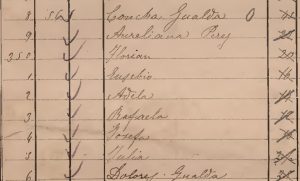 8 54 Concha Gualda 0
9 Aureliana Rey
350 Florian
1 Eusebio
2 Adela
3 Rafaela
4 Josefa
5 Julia
6 Dolores Gualda